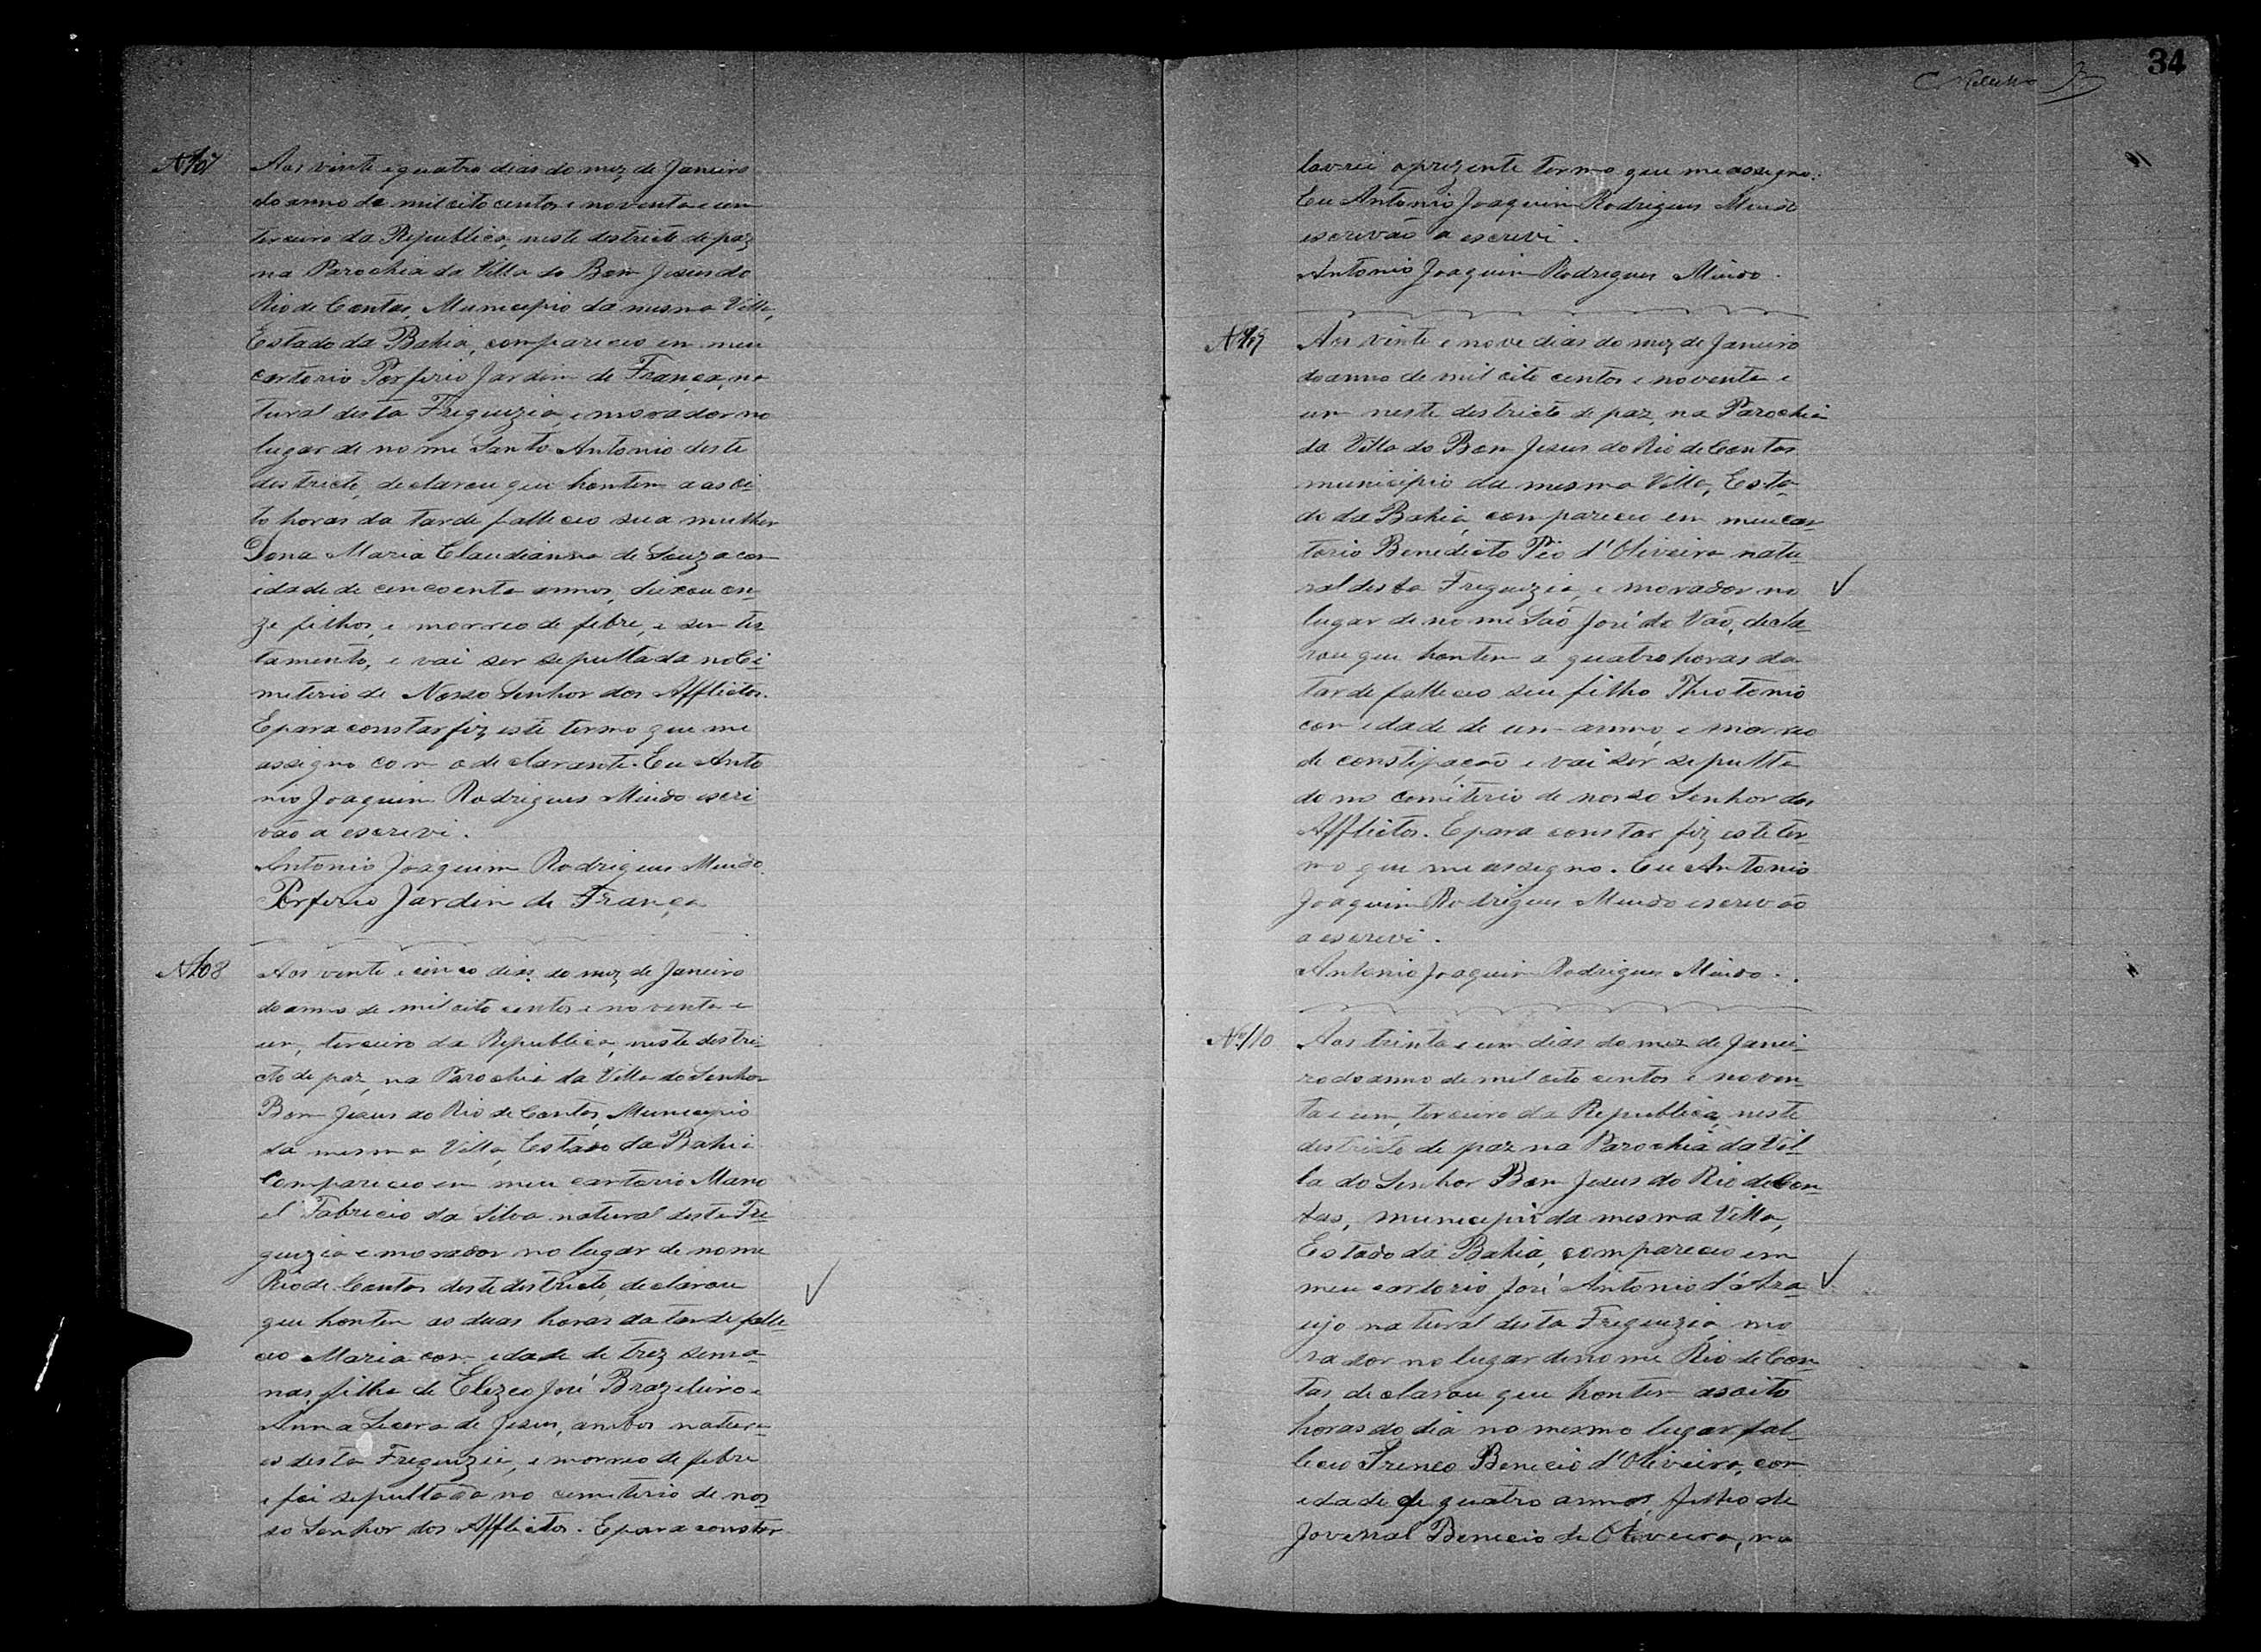 Nº 107
Aos vinte e quatro dias do mez de Janeiro
do anno de mil oito centos e noventa e um
terceiro da Republica, neste destricto de paz
na Parochia da Villa do Bom Jesus do
Rio de Contas, Municipio da mesma Villa,
Estado da Bahia, compareceo em meu
cartorio Porfirio Jardim de França, na
tural desta Freguezia, e morador no
lugar de nome Santo Antonio deste
destricto, declarou que hontem a as oi
to horas da tarde falleceo sua mulher
Dona Maria Claudianna de Souza com
idade de cincoenta annos, deixou on-
ze filhos, e morreo de febre, e sem tes
tamento, e vai ser sepultada no Ci
miterio de Nosso Senhor dos Afflictos.
E para constar fiz este termo que me
assigno com o declarante. Eu Anto
nio Joaquim Rodrigues Miudo escri
vão a escrevi.
Antonio Joaquim Rodrigues Miudo.
Porfirio Jardim de França
Nº 108
Aos vente e cinco dias do mez de Janeiro
do anno de mil oito centos e noventa e
um, terceiro da Republica, neste destri-
cto de paz, na Parochia da Villa do Senhor
Bom Jesus do Rio de Contas, Municipio
da mesma Villa, Estado da Bahia
Compareceo em meu cartorio Mano
el Fabricio da Silva natural desta Fre
guezia e morador no lugar de nome
Rio de Contas deste destricto, declarou
que hontem as duas horas da tarde falle-
ceo Maria com idade de trez sema-
nas, filha de Elizeo José Brazileiro e
Anna de Jesus, ambos natura-
es desta Freguezia, e morreo de febre
e foi sepultada no cemiterio de nos
so Senhor dos Afflictos. E para constar
34
lavrei o prezente termo que me assigno.
Eu Antonio Joaquim Rodrigues Miudo
escrevão a escrevi.
Antonio Joaquim Rodrigues Miudo.
Nº 109
Aos vinte e nove dias do mez de Janeiro
do anno de mil oito centos e noventa e
um neste destricto de paz, na Parochia
da Villa do Bom Jesus do Rio de Contas
municipio da mesma Villa, Esta
do da Bahia, compareceo em meu car
torio Benedicto Pio d'Oliveira natu-
ral desta Freguezia, e morador no
lugar de nome São José do Vão, decla-
rou que hontem a quatro horas da
tarde falleceo seu filho Theotonio
com idade de um anno, e morreo
de constipação e vai ser sepulta
do no cemiterio de nosso Senhor dos
Afflictos. E para constar fiz este ter-
mo que me assigno. Eu Antonio
Joaquim Rodrigues Miudo escrevão
a escrevi.
Antonio Joaquim Rodrigues Miudo.
Nº 110
Aos trinta e um dias do mez de Janei-
ro do anno de mil oito centos e noven
ta e um, terceiro da Republica, neste
destricto de paz na Parochia da Vil
la do Senhor Bom Jesus do Rio de Con
tas, municipio da mesma Villa,
Estado da Bahia, compareceo em
meu cartorio José Antonio d'Ara
ujo natural desta Freguezia, mo
rador no lugar de nome Rio de Con
tas declarou que hontem as oito
horas do dia no mesmo lugar fal
leceo Benicio d'Oliveira, com
idade de quatro annos, filho de
Jovenal Benicio de Oliveira, na